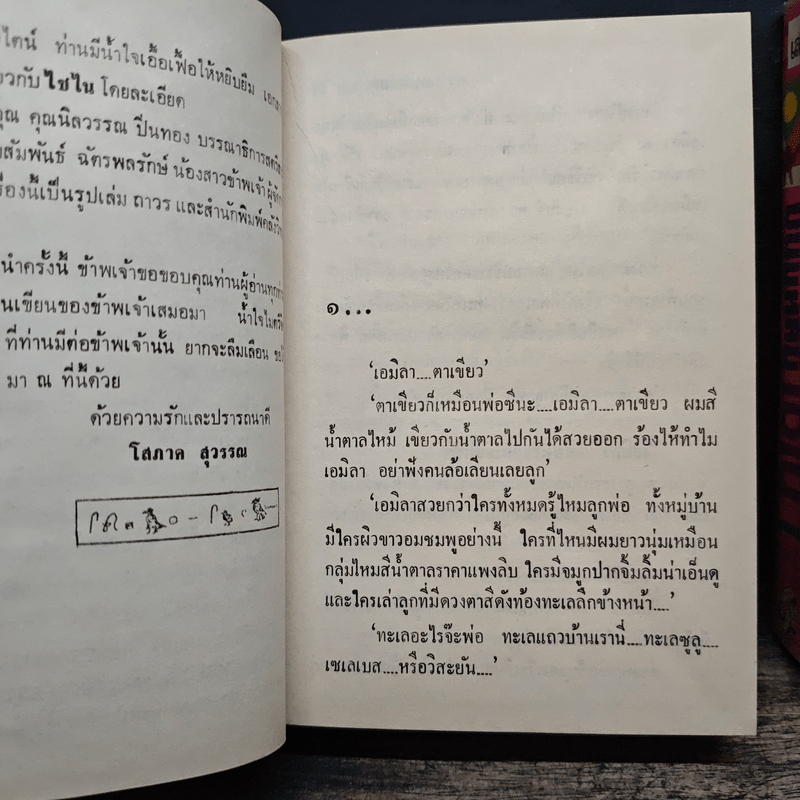 ท่านมีน้ำใจเอื้อเฟื้อให้หยิบยืม
ไซไน โดยละเอียด
คุณนิลวรรณ ปิ่นทอง บรรณาธิการ
ฉัตรพลรักษ์ น้องสาวข้าพเจ้า
เป็นรูปเล่ม ถาวร และสำนักพิมพ์
ครั้งนี้ ข้าพเจ้าขอขอบคุณท่านผู้อ่าน
เขียนของข้าพเจ้าเสมอมา น้ำใจไมตรี
ที่ท่านมีต่อข้าพเจ้านั้น ยากจะลืมเลือน
มา ณ ที่นี้ด้วย
ด้วยความรักและปรารถนาดี
โสภาค สุวรรณ
๑...
‘เอมิลา....ตาเขียว’
‘ตาเขียวก็เหมือนพ่อซีนะ....เอมิลา....ตาเขียว ผมสี
น้ำตาลไหม้ เขียวกับน้ำตาลไปกันได้สวยออก ร้องไห้ทำไม
เอมิลา อย่าฟังคนล้อเลียนเลยลูก’
‘เอมิลาสวยกว่าใครทั้งหมดรู้ไหมลูกพ่อ ทั้งหมู่บ้าน
มีใครผิวขาวอมชมพูอย่างนี้ ใครที่ไหนมีผมยาวนุ่มเหมือน
กลุ่มไหมสีน้ำตาลราคาแพงลิบ ใครมีจมูกปากจิ้มลิ้มน่าเอ็นดู
และใครเล่าลูกที่มีดวงตาสีดังท้องทะเลลึกข้างหน้า....’
‘ทะเลอะไรจ๊ะพ่อ ทะเลแถวบ้านเรานี่....ทะเลซูลู....
เซเลเบส....หรือวิสะยัน....’